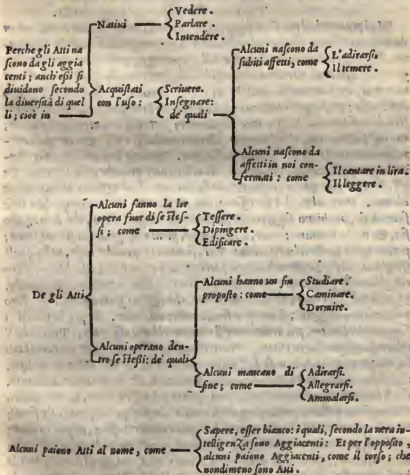 Perche gli Atti na
scono da gli aggia
centi; anch'eßi si
diuidono secondo
la diuersità di quel
li; cioè in
Natiui
Vedere.
Parlare.
Intendere.
Acquistati
con l'uso:
Scriuere.
Insegnare:
de' quali
Alcuni nascono da
subiti affetti, come
L'adirarsi.
Il temere.
Alcuni nascono da
affetti in noi con-
fermati: come
Il cantare in lira.
Il leggere.
De gli Atti
Alcuni fanno la lor
opera fuor di se steſ-
ſi; come
Tessere.
Dipingere.
Edificare.
Alcuni operano den-
tro se steßi: de' quali
Alcuni hanno un fin
proposto: come
Studiare.
Caminare.
Dormire.
Alcuni mancano di
fine; come
Adirarsi.
Allegrarsi.
Ammalarsi.
Alcuni paiono Atti al nome, come
Sapere, esser bianco: i quali, secondo la uera in-
telligenza sono Aggiacenti: Et per l'opposito,
alcuni paiono Aggiacenti, come il corso; che
nondimeno sono Atti.